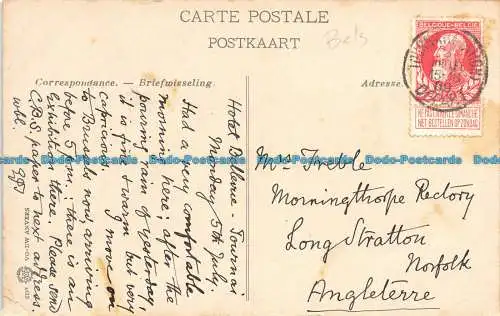 CARTE POSTALE
POSTKAART
Bels
Correspondance. — Briefwisseling
Adresse.
BELGIQUE·BELGIË
NE PAS LIVRER LE DIMANCHE
NIET BESTELLEN OP ZONDAG
Hotel Bellevue - Tournai
Monday 5th July.
Had a very comfortable
morning here; after the
pouring rain of yesterday,
it is fine & warm but very
capricious. I move on
to Brussels now, arriving
before 5 pm. there is an
Exhibition there. Please send
C.B.S. paper to next address.
Mrs Treble
Morningthorpe Rectory
Long Stratton
Norfolk
Angleterre
Dodo-Postcards.co.uk